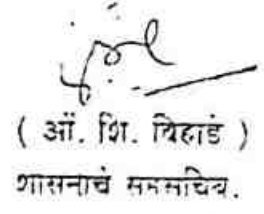 ( ओं. शि. बिहाडे )
शासनाचे सहसचिव.